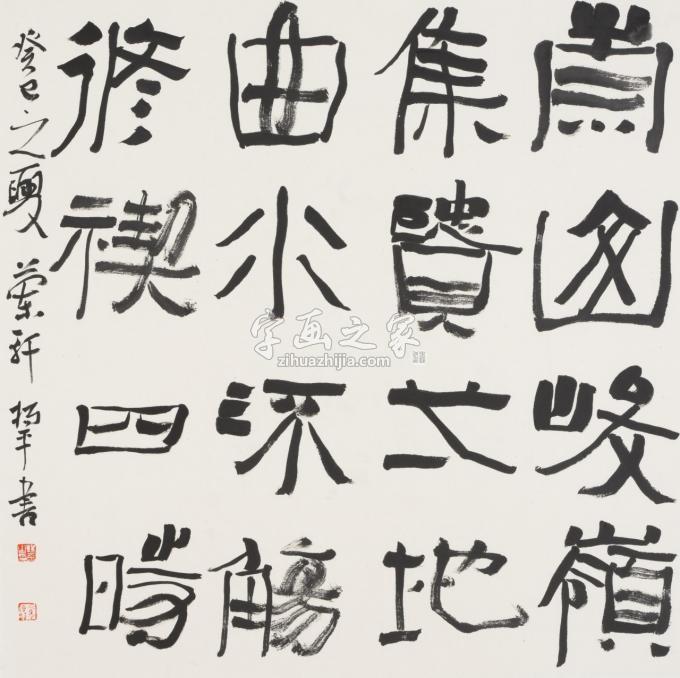 崇山峻嶺
集賢之地
曲水流觴
修禊四時
癸巳之夏 蘭軒 平书
字画之家
zihuazhijia.com